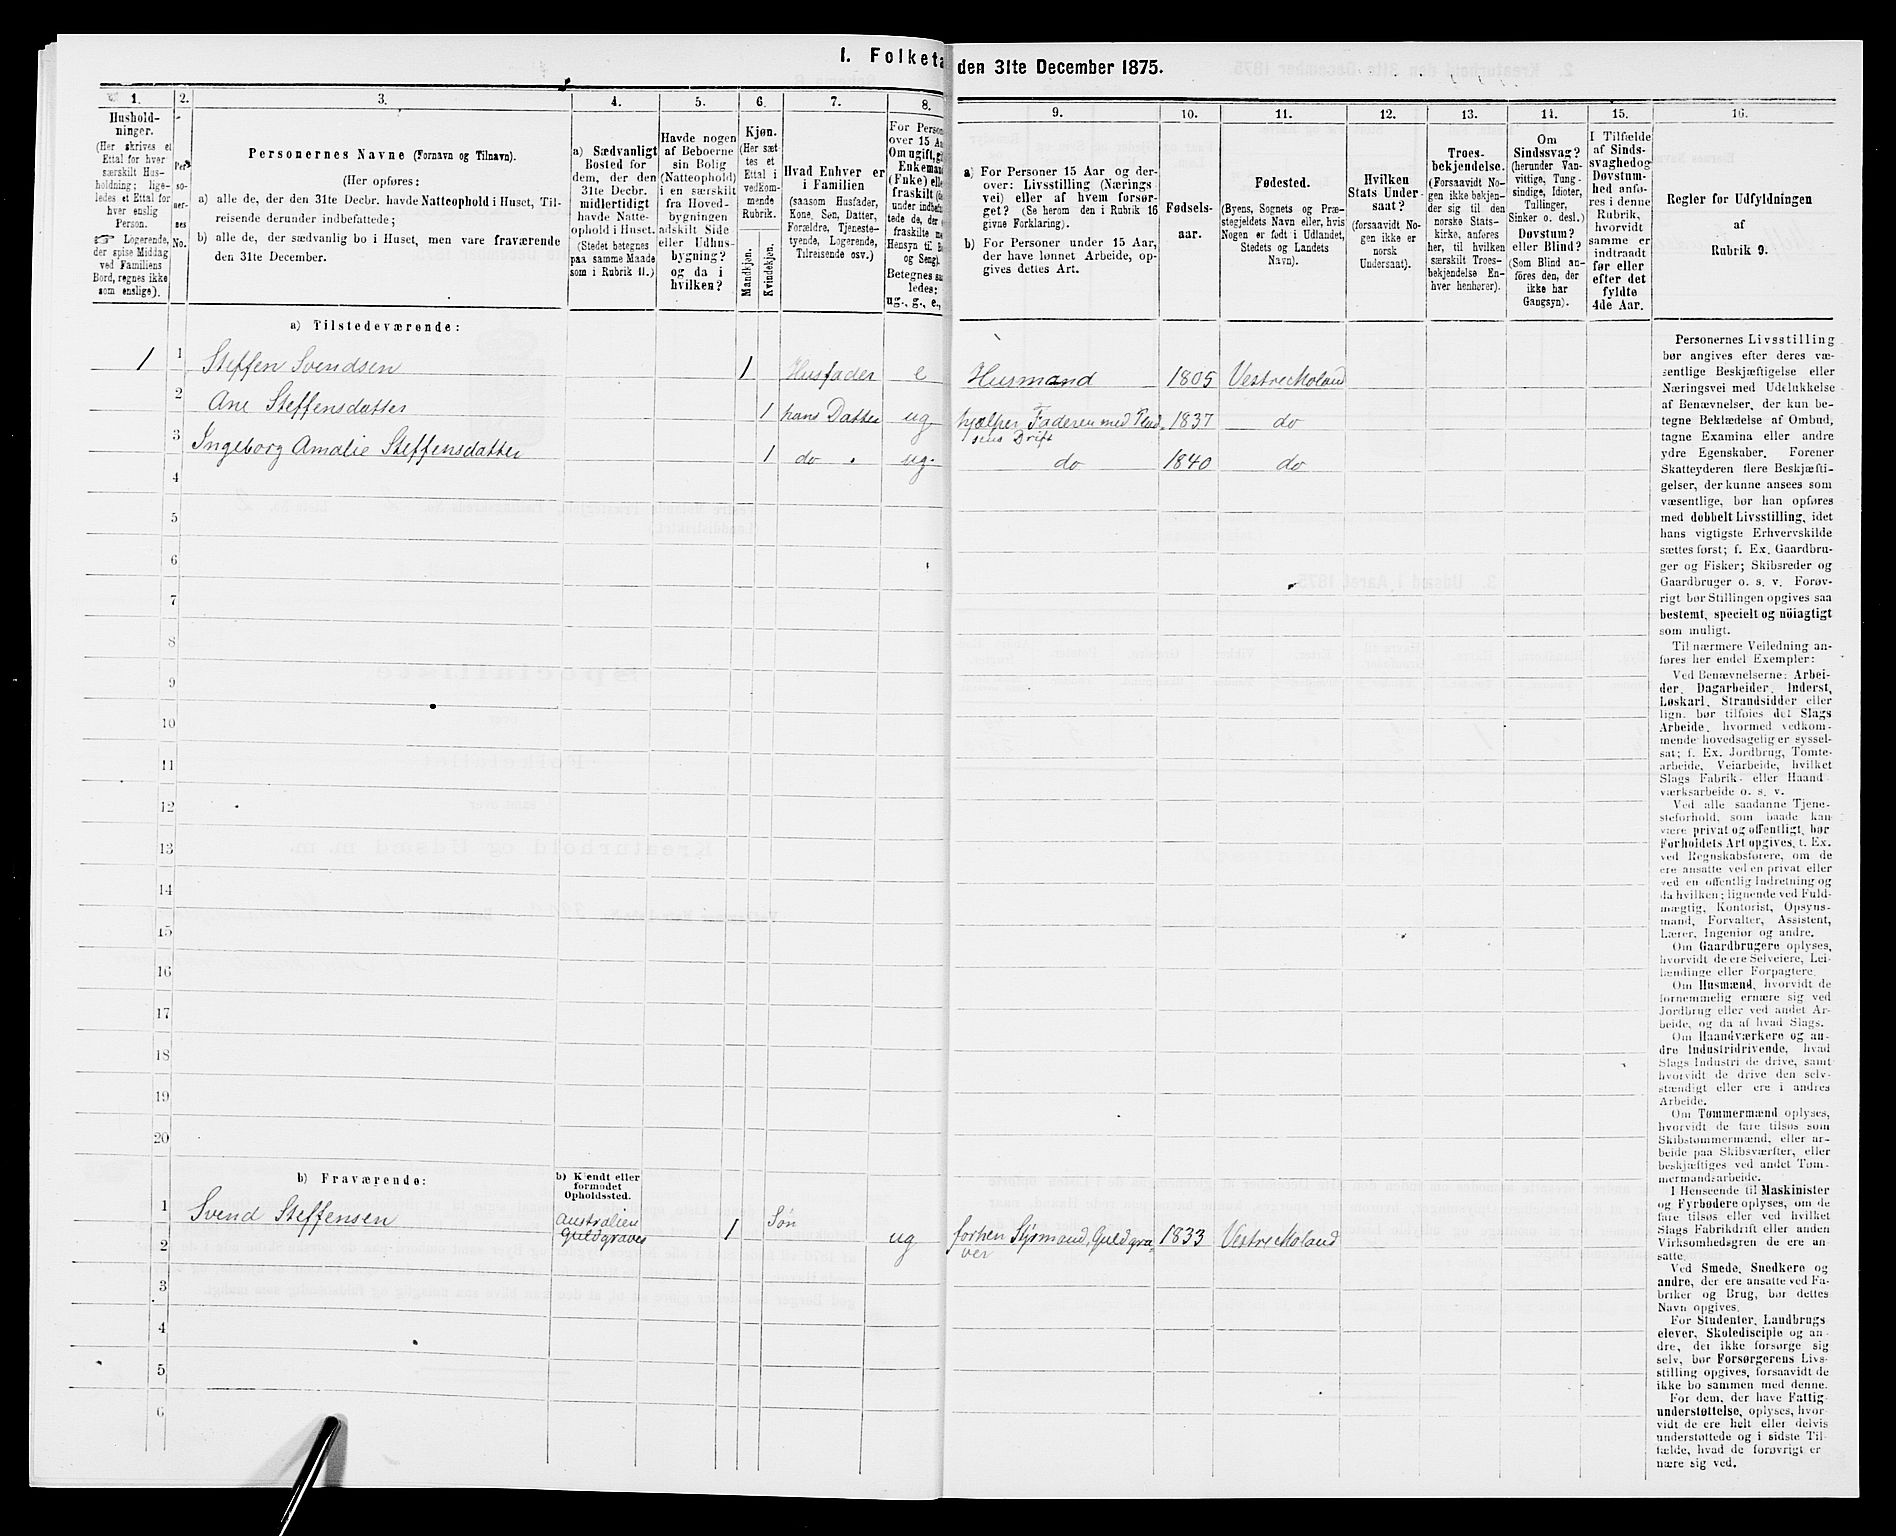 I. Folketa den 31te December 1875.
1. 2. 3. 4. 5. 6. 7. 8. 9. 10. 11. 12. 13. 14. 15. 16.
Hushold-
ninger.
(Her skrives et
Ettal for hver
særskilt Hus-
holdning; lige-
ledes et Ettal for
hver enslig
Person.
☞ Logerende,
der spise Middag
ved Familiens
Bord, regnes ikke
som enslige).
Per-
so-
ner-
nes
No.
Personernes Navne (Fornavn og Tilnavn).
(Her opføres:
a) alle de, der den 31te Decbr. havde Natteophold i Huset, Til-
reisende derunder indbefattede;
b) alle de, der sædvanlig bo i Huset, men vare fraværende
den 31te December.
a) Sædvanligt
Bosted for
dem, der den
31te Decbr.
midlertidigt
havde Natte-
ophold i Huset.
(Stedet betegnes
paa samme Maade
som i Rubrik 11.)
Havde nogen
af Beboerne
sin Bolig
(Natteophold)
i en særskilt
fra Hoved-
bygningen
adskilt Side
eller Udhus-
bygning?
og da i
hvilken?
Kjøn.
(Her sæt-
tes et
Ettal i
vedkom-
mende
Rubrik.
Mandkjøn.
Kvindekjøn.
Hvad Enhver er
i Familien
(saasom Husfader,
Kone, Søn, Datter,
Forældre, Tjeneste-
tyende, Logerende,
Tilreisende osv.)
For Person
over 15 Aa
Om ugift, gi
Enkemand
(Enke) elle
fraskilt (de
under indbefat
tede de, der e
fraskilte me
Hensyn til Bo
og Seng).
Betegnes saa
ledes:
ug., g., e.,
a) For Personer 15 Aar og der-
over: Livsstilling (Nærings-
vei) eller af hvem forsør-
get? (Se herom den i Rubrik 16
givne Forklaring).
b) For Personer under 15 Aar,
der have lønnet Arbeide, op-
gives dettes Art.
Fødsels-
aar.
Fødested.
(Byens, Sognets og Præ-
stegjeldets Navn eller, hvis
Nogen er født i Udlandet,
Stedets og Landets
Navn).
Hvilken
Stats Under-
saat?
(forsaavidt No-
gen ikke er
norsk
Undersaat).
Troes-
bekjendelse.
(Forsaavidt No-
gen ikke bekjen-
der sig til den
norske Stats-
kirke, anføres
her, til hvilken
særskilt Troes-
bekjendelse En-
hver henhører).
Om
Sindssvag?
(herunder Van-
vittige, Tung-
sindige, Idioter,
Tullinger,
Sinker o. desl.)
Døvstum?
eller Blind?
(Som Blind an-
føres den, der
ikke har
Gangsyn).
I Tilfælde
af Sinds-
svaghed og
Døvstum-
hed anfø-
res i denne
Rubrik,
hvorvidt
samme er
indtraadt
før eller
efter det
fyldte
4de Aar.
Regler for Udfyldningen
af
Rubrik 9.
a) Tilstedeværende:
1 1 Steffen Svendsen 1 Husfader e Husmand 1805 Vestre Moland
2 Ane Steffensdatter 1 hans Datter ug hjælper Faderen med 1837 do
sens Drift
3 Ingeborg Amalie Steffensdatter 1 do " ug. do 1840 do
4
5
6
7
8
9
10
11
12
13
14
15
16
17
18
19
20
b) Fraværende:
b) Kjendt eller
formodet
Opholdssted.
1 Svend Steffensen Australien 1 Søn ug forhen Styrmand, Guldgra- 1833 Vestre Moland
Guldgraver ver
2
3
4
5
6
Personernes Livsstilling
bør angives efter deres væ-
sentlige Beskjæftigelse eller
Næringsvei med Udelukkelse
af Benævnelser, der kun be-
tegne Beklædelse af Ombud,
tagne Examina eller andre
ydre Egenskaber. Forener
Skatteyderen flere Beskjæfti-
gelser, der kunne ansees som
væsentlige, bør han opføres
med dobbelt Livsstilling, idet
hans vigtigste Erhvervskilde
sættes først; f. Ex. Gaardbru-
ger og Fisker; Skibsreder og
Gaardbruger o. s. v. Forøv-
rigt bør Stillingen opgives saa
bestemt, specielt og nöiagtigt
som muligt.
Til nærmere Veiledning an-
føres her endel Exempler:
Ved Benævnelserne: Arbei-
der, Dagarbeider, Inderst,
Løskarl, Strandsidder eller
lign. bør tilføies det Slags
Arbeide, hvormed vedkom-
mende hovedsagelig er syssel-
sat; f. Ex. Jordbrug, Tomte-
arbeide, Veiarbeide, hvilket
Slags Fabrik- eller Haand-
værksarbeide o. s. v.
Ved alle saadanne Tjene-
steforhold, som baade kan
være privat og offentligt, bør
Forholdets Art opgives, f. Ex.
ved Regnskabsførere, om de
ere ansatte ved en privat eller
ved en offentlig Indretning og
da hvilken; lignende ved Fuld-
mægtig, Kontorist, Opsyns-
mand, Forvalter, Assistent,
Lærer, Ingeniør og andre.
Om Gaardbrugere oplyses,
hvorvidt de ere Selveiere, Lei-
lændinge eller Forpagtere.
Om Husmænd, hvorvidt de
fornemmelig ernære sig ved
Jordbrug eller ved andet Ar-
beide, og da af hvad Slags.
Om Haandværkere og an-
dre Industridrivende, hvad
Slags Industri de drive, samt
hvorvidt de drive den selv-
stændigt eller ere i andres
Arbeide.
Om Tømmermænd oplyses,
hvorvidt de fare tilsøs som
Skibstømmermænd, eller ar-
beide paa Skibsværfter, eller
beskjæftiges ved andet Tøm-
mermandsarbeide.
I Henseende til Maskinister
og Fyrbødere oplyses, om de
fare tilsøs eller ved hvilket
Slags Fabrikdrift eller anden
Virksomhedsgren de ere an-
satte.
Ved Smede, Snedkere og
andre, der ere ansatte ved Fa-
briker og Brug, bør dettes
Navn opgives.
For Studenter, Landbrugs-
elever, Skoledisciple og an-
dre, der ikke forsørge sig
selv, bør Forsørgerens Livs-
stilling opgives, forsaavidt de
ikke bo sammen med denne.
For dem, der have Fattig-
understøttelse, oplyses, hvor-
vidt de ere helt eller delvis
understøttede og i sidste Til-
fælde, hvad de forøvrigt er-
nære sig ved.